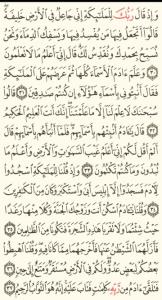 وَإِذْ قَالَ رَبُّكَ لِلْمَلَٰٓئِكَةِ إِنِّى جَاعِلٌ فِى ٱلْأَرْضِ خَلِيفَةً
قَالُوٓا۟ أَتَجْعَلُ فِيهَا مَن يُفْسِدُ فِيهَا وَيَسْفِكُ ٱلدِّمَآءَ وَنَحْنُ
نُسَبِّحُ بِحَمْدِكَ وَنُقَدِّسُ لَكَ قَالَ إِنِّىٓ أَعْلَمُ مَا لَا تَعْلَمُونَ
٣٠ وَعَلَّمَ ءَادَمَ ٱلْأَسْمَآءَ كُلَّهَا ثُمَّ عَرَضَهُمْ عَلَى ٱلْمَلَٰٓئِكَةِ
فَقَالَ أَنۢبِـُٔونِى بِأَسْمَآءِ هَٰٓؤُلَآءِ إِن كُنتُمْ صَٰدِقِينَ ٣١ قَالُوا۟
سُبْحَٰنَكَ لَا عِلْمَ لَنَآ إِلَّا مَا عَلَّمْتَنَآ إِنَّكَ أَنتَ ٱلْعَلِيمُ ٱلْحَكِيمُ
٣٢ قَالَ يَٰٓـَٔادَمُ أَنۢبِئْهُم بِأَسْمَآئِهِمْ فَلَمَّآ أَنۢبَأَهُم بِأَسْمَآئِهِمْ قَالَ
أَلَمْ أَقُل لَّكُمْ إِنِّىٓ أَعْلَمُ غَيْبَ ٱلسَّمَٰوَٰتِ وَٱلْأَرْضِ وَأَعْلَمُ مَا
تُبْدُونَ وَمَا كُنتُمْ تَكْتُمُونَ ٣٣ وَإِذْ قُلْنَا لِلْمَلَٰٓئِكَةِ ٱسْجُدُوا۟
لِـَٔادَمَ فَسَجَدُوٓا۟ إِلَّآ إِبْلِيسَ أَبَىٰ وَٱسْتَكْبَرَ وَكَانَ مِنَ ٱلْكَٰفِرِينَ
٣٤ وَقُلْنَا يَٰٓـَٔادَمُ ٱسْكُنْ أَنتَ وَزَوْجُكَ ٱلْجَنَّةَ وَكُلَا مِنْهَا رَغَدًا
حَيْثُ شِئْتُمَا وَلَا تَقْرَبَا هَٰذِهِ ٱلشَّجَرَةَ فَتَكُونَا مِنَ ٱلظَّٰلِمِينَ ٣٥
فَأَزَلَّهُمَا ٱلشَّيْطَٰنُ عَنْهَا فَأَخْرَجَهُمَا مِمَّا كَانَا فِيهِ وَقُلْنَا ٱهْبِطُوا۟
بَعْضُكُمْ لِبَعْضٍ عَدُوٌّ وَلَكُمْ فِى ٱلْأَرْضِ مُسْتَقَرٌّ وَمَتَٰعٌ إِلَىٰ حِينٍ
٣٦ فَتَلَقَّىٰٓ ءَادَمُ مِن رَّبِّهِۦ كَلِمَٰتٍ فَتَابَ عَلَيْهِ إِنَّهُۥ هُوَ ٱلتَّوَّابُ ٱلرَّحِيمُ ٣٧